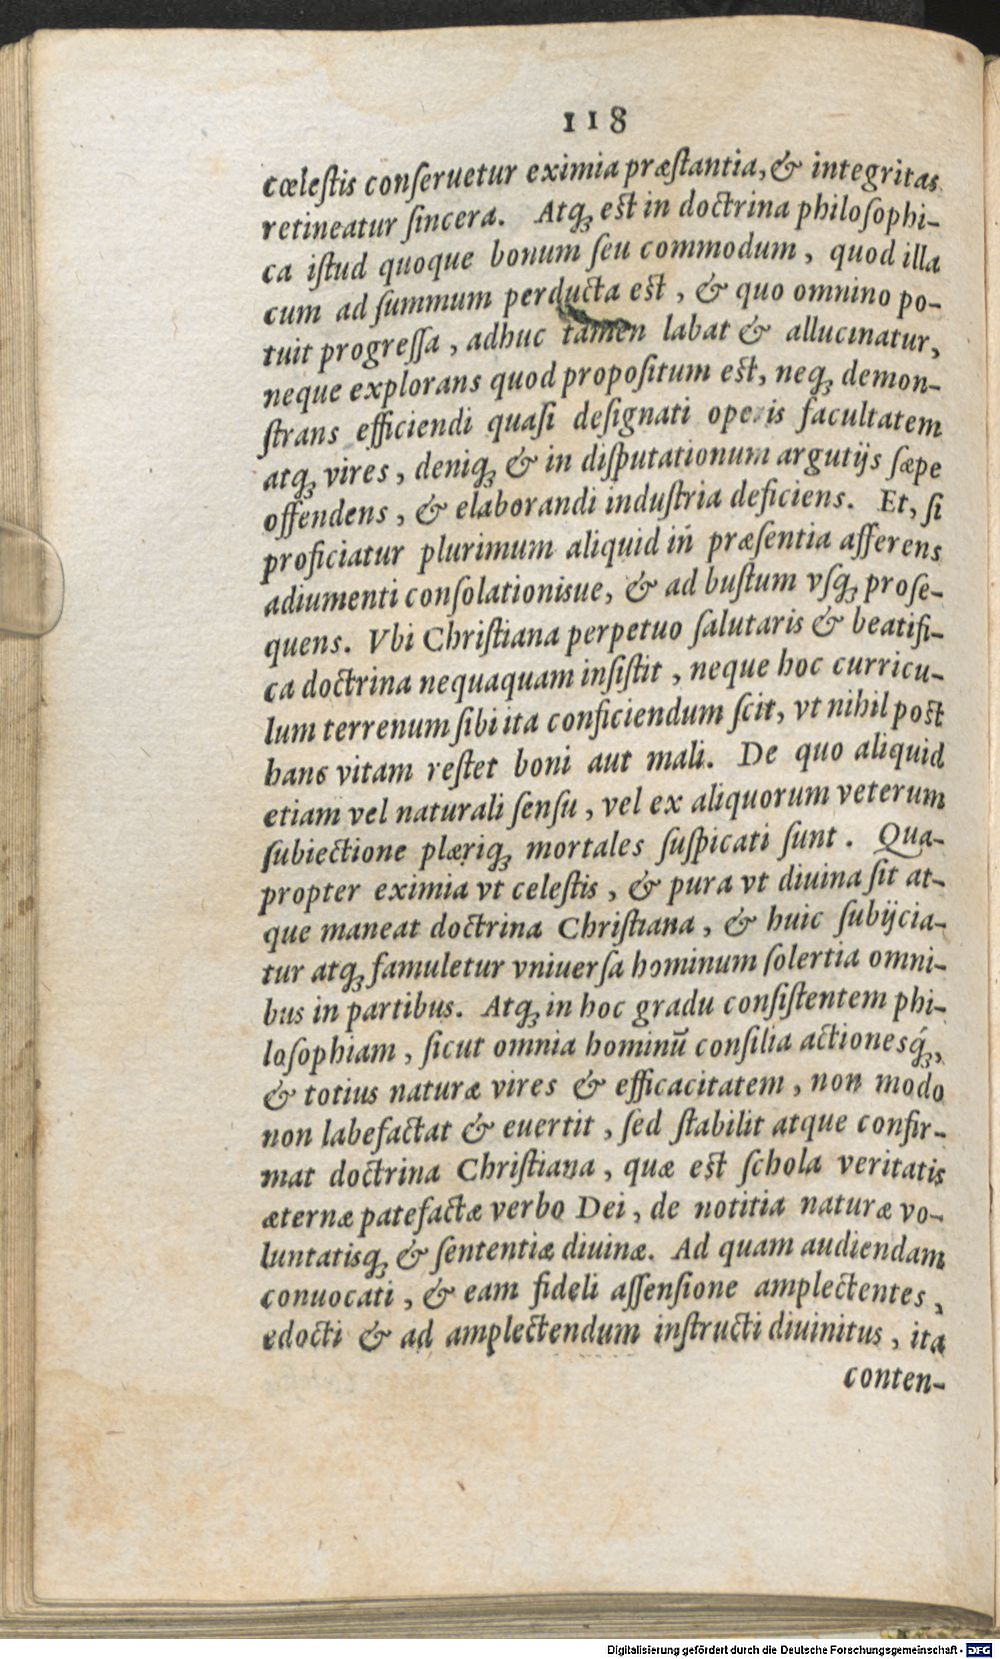 118
cœleſtis conſeruetur eximia præſtantia, & integritas
retineatur ſincera. Atqꝫ est in doctrina philoſophi-
ca iſtud quoque bonum ſeu commodum, quod illa
cum ad ſummum perducta est, & quo omnino po-
tuit progreſſa, adhuc tamen labat & allucinatur,
neque explorans quod propoſitum est, neqꝫ demon-
ſtrans efficiendi quaſi deſignati operis facultatem
atqꝫ vires, deniqꝫ & in diſputationum argutijs ſæpe
offendens, & elaborandi induſtria deficiens. Et, ſi
proficiatur plurimum aliquid in præſentia afferens
adiumenti conſolationisue, & ad buſtum vſqꝫ proſe-
quens. Vbi Chriſtiana perpetuo ſalutaris & beatifi-
ca doctrina nequaquam inſiſtit, neque hoc curricu-
lum terrenum ſibi ita conficiendum ſcit, vt nihil post
hanc vitam reſtet boni aut mali. De quo aliquid
etiam vel naturali ſenſu, vel ex aliquorum veterum
ſubiectione plæriqꝫ mortales ſuſpicati ſunt. Qua-
propter eximia vt celeſtis, & pura vt diuina ſit at-
que maneat doctrina Chriſtiana, & huic ſubijcia-
tur atqꝫ famuletur vniuerſa hominum ſolertia omni-
bus in partibus. Atqꝫ in hoc gradu conſiſtentem phi-
loſophiam, ſicut omnia hominū conſilia actionesqꝫ́,
& totius naturæ vires & efficacitatem, non modo
non labefactat & euertit, ſed ſtabilit atque confir-
mat doctrina Chriſtiana, quæ est ſchola veritatis
æternæ patefactæ verbo Dei, de notitia naturæ vo-
luntatisqꝫ & ſententiæ diuinæ. Ad quam audiendam
conuocati, & eam fideli aſſenſione amplectentes,
edocti & ad amplectendum inſtructi diuinitus, ita
conten-
Digitalisierung gefördert durch die Deutsche Forschungsgemeinschaft - DFG